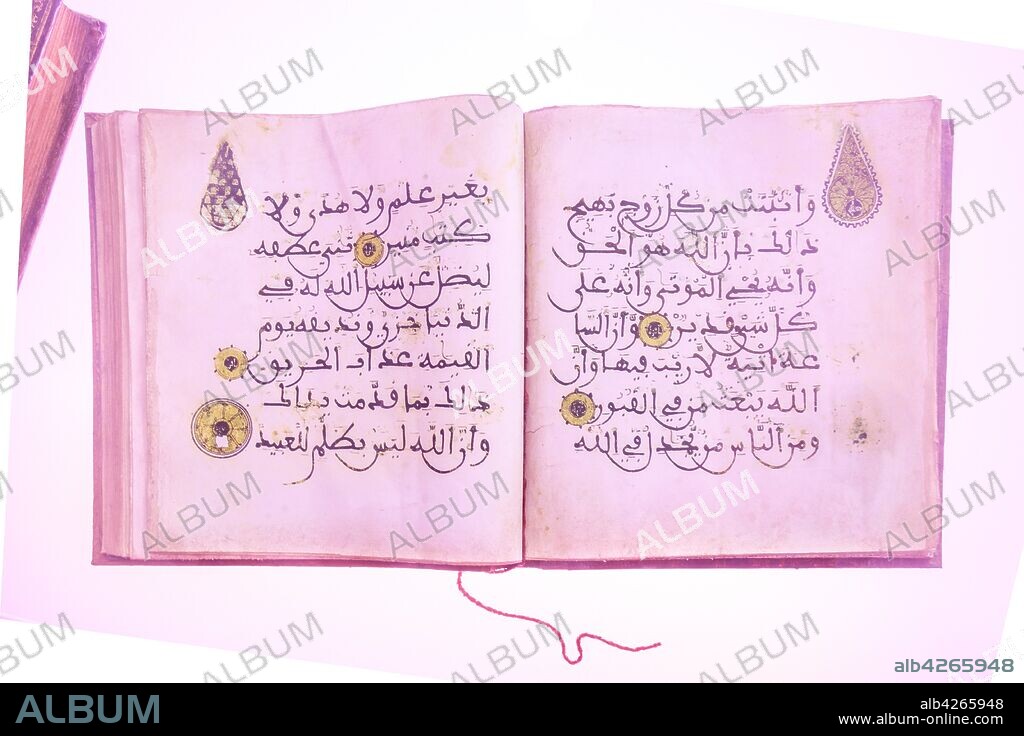 وأنبتت من كل زوج بهيج
ذلك بأن الله هو الحق
وأنه يحي الموتى وأنه على
كل شيء قدير وأن السا
عة اتية لا ريب فيها وأن
الله يبعث من في القبور
ومن الناس من يجدل في الله
بغير علم ولا هدى ولا
كتب منير ثني عطفه
ليضل عن سبيل الله له في
الدنيا خزي ونذيقه يوم
القيمة عذاب الحريق
ذلك بما قدمت يداك
وأن الله ليس بظلم للعبيد
alb4265948
ALBUM
alb4265948
www.album-online.com